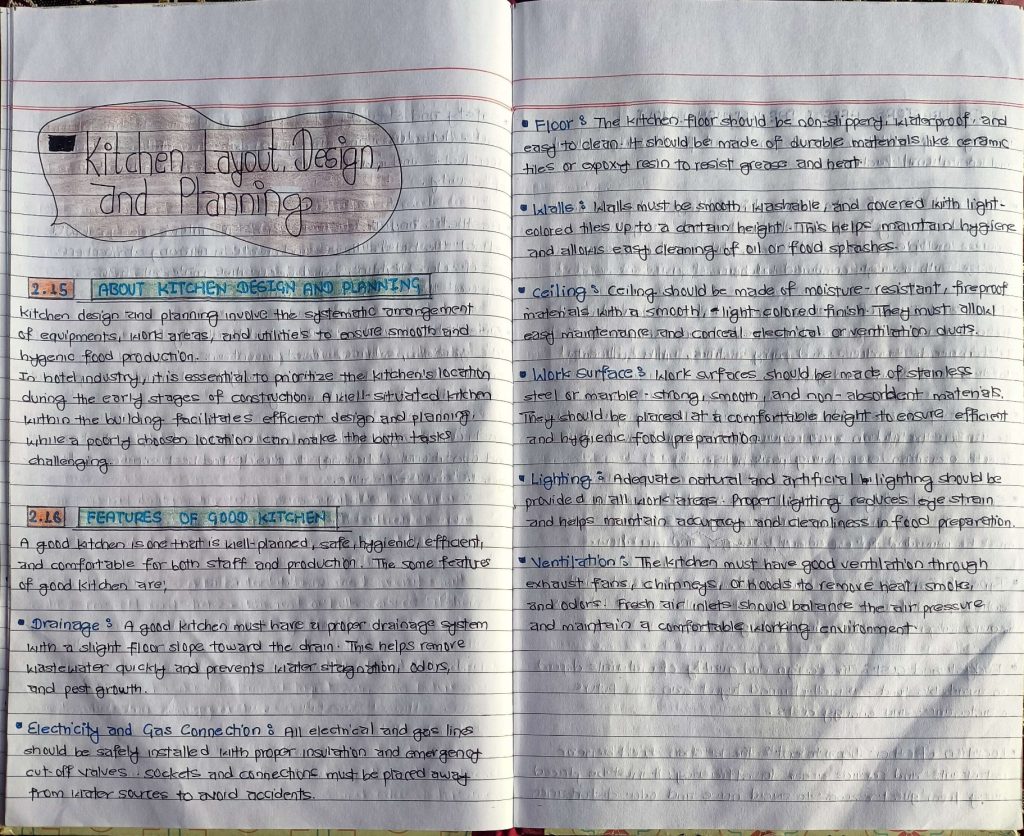 Kitchen Layout, Design,
and Planning
2.15 ABOUT KITCHEN DESIGN AND PLANNING
Kitchen design and planning involve the systematic arrangement
of equipments, work areas, and utilities to ensure smooth and
hygenic food production.
In hotel industry, it is essential to prioritize the kitchen's location
during the early stages of construction. A well-situated kitchen
within the building facilitates efficient design and planning,
while a poorly choosen location can make the both tasks
challenging.
2.16 FEATURES OF GOOD KITCHEN
A good kitchen is one that is well-planned, safe, hygienic, efficient,
and comfortable for both staff and production. The some features
of good kitchen are;
• Drainage : A good kitchen must have a proper drainage system
with a slight floor slope toward the drain. This helps remove
wastewater quickly and prevents water stagnation, odors,
and pest growth.
• Electricity and Gas Connection : All electrical and gas lines
should be safely installed with proper insulation and emergency
cut-off valves. Sockets and connections must be placed away
from water sources to avoid accidents.
• Floor : The kitchen floor should be non-slippery, waterproof, and
easy to clean. It should be made of durable materials like ceramic
tiles or expoxy resin to resist grease and heat.
• Walls : Walls must be smooth, washable, and covered with light-
colored tiles up to a certain height. This helps maintain hygiene
and allows easy cleaning of oil or food splashes.
• Ceiling : Ceiling should be made of moisture-resistant, fireproof
materials with a smooth, light-colored finish. They must allow
easy maintenance and conceal electrical or ventilation ducts.
• Work Surface : Work surfaces should be made of stainless
steel or marble - strong, smooth, and non-absorbent materials.
They should be placed at a comfortable height to ensure efficient
and hygienic food preparation.
• Lighting : Adequate natural and artificial lighting should be
provided in all work areas. Proper lighting reduces eye strain
and helps maintain accuracy and cleanliness in food preparation.
• Ventilation : The kitchen must have good ventilation through
exhaust fans, chimneys, or hoods to remove heat, smoke,
and odors. Fresh air inlets should balance the air pressure
and maintain a comfortable working environment.